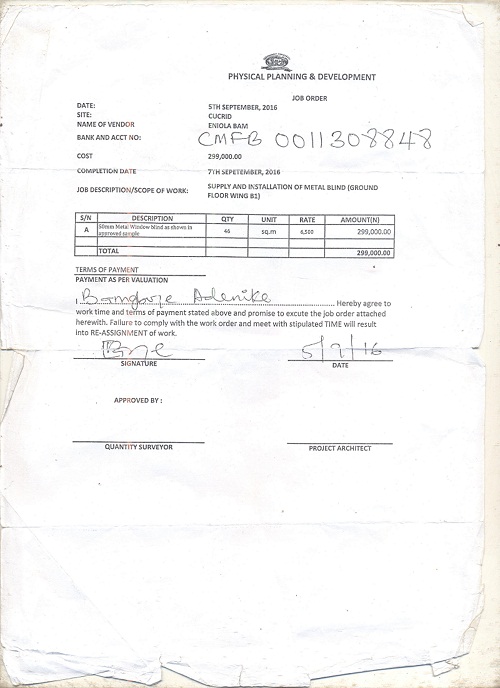 PHYSICAL PLANNING & DEVELOPMENT
JOB ORDER
DATE: 5TH SEPTEMBER, 2016
SITE: CUCRID
NAME OF VENDOR ENIOLA BAM
BANK AND ACCT NO: CMFB 0011308848
COST 299,000.00
COMPLETION DATE 7TH SEPETEMBER, 2016
JOB DESCRIPTION/SCOPE OF WORK: SUPPLY AND INSTALLATION OF METAL BLIND (GROUND
FLOOR WING B1)
S/N DESCRIPTION QTY UNIT RATE AMOUNT(N)
A 50mm Metal Window blind as shown in approved sample 46 sq.m 6,500 299,000.00
TOTAL 299,000.00
TERMS OF PAYMENT
PAYMENT AS PER VALUATION
Bamgboje Adenike Hereby agree to
work time and terms of payment stated above and promise to excute the job order attached
herewith. Failure to comply with the work order and meet with stipulated TIME will result
into RE-ASSIGNMENT of work.
5/9/16
SIGNATURE DATE
APPROVED BY :
QUANTITY SURVEYOR PROJECT ARCHITECT